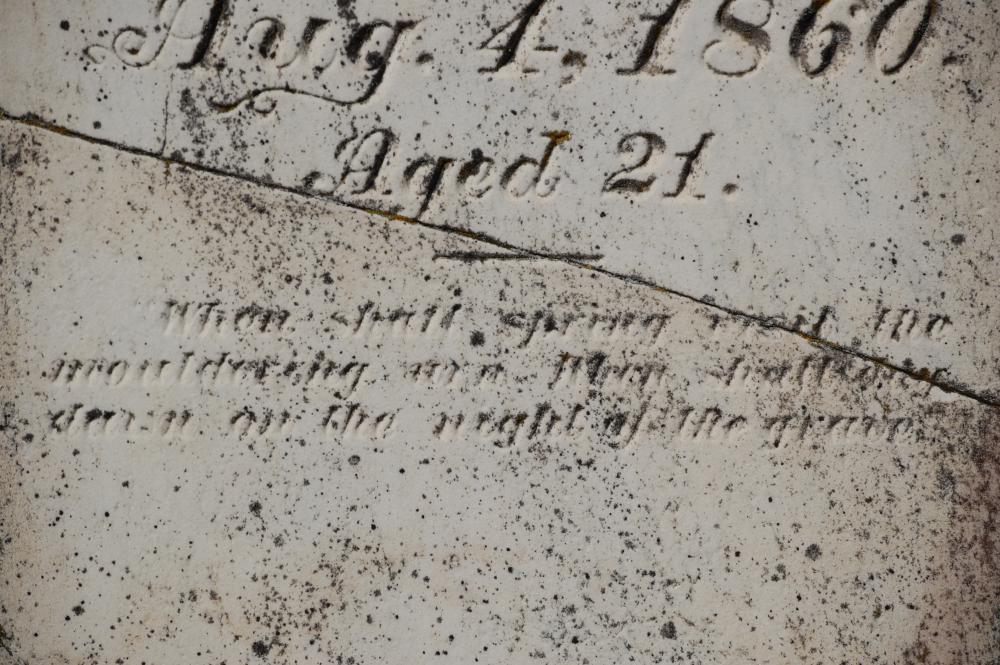 Aug. 4, 1860.
Aged 21.
When shall spring visit the
mouldering urn When shall day
dawn on the night of the grave